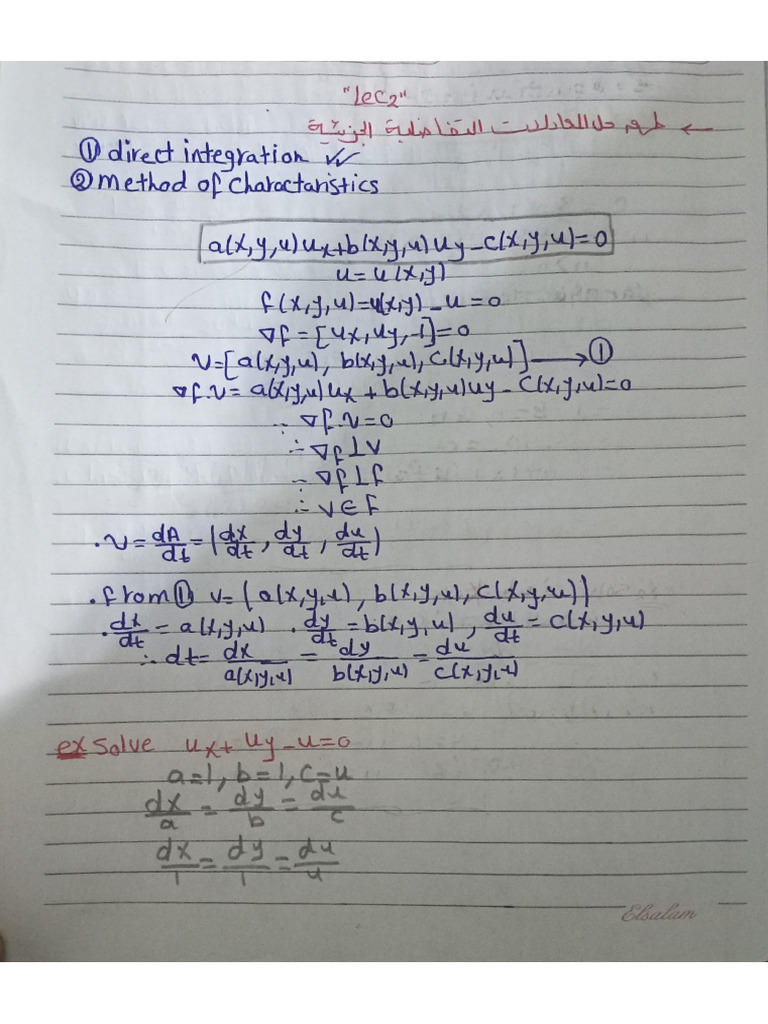 "Lec2"
← طرق حل المعادلات التفاضلية الجزئية
① direct integration ✓✓
② method of charactaristics
a(x,y,u)ux+b(x,y,u)uy-c(x,y,u)=0
u=u(x,y)
f(x,y,u)=u(x,y)-u=0
∇f=[ux,uy,-1]=0
v=[a(x,y,u), b(x,y,u), c(x,y,u)]⟶①
∇f.v=a(x,y,u)ux+b(x,y,u)uy-c(x,y,u)=0
∴ ∇f.v=0
∴ ∇f⊥v
∴ ∇f⊥f
∴ v∈f
.v=dA/dt=(dx/dt, dy/dt, du/dt)
.from① v=(a(x,y,u), b(x,y,u), c(x,y,u))
.dx/dt=a(x,y,u) .dy/dt=b(x,y,u), du/dt=c(x,y,u)
∴ dt=dx/a(x,y,u)=dy/b(x,y,u)=du/c(x,y,u)
ex solve ux+uy-u=0
a=1, b=1, c=u
dx/a=dy/b=du/c
dx/1=dy/1=du/u
Elsalam